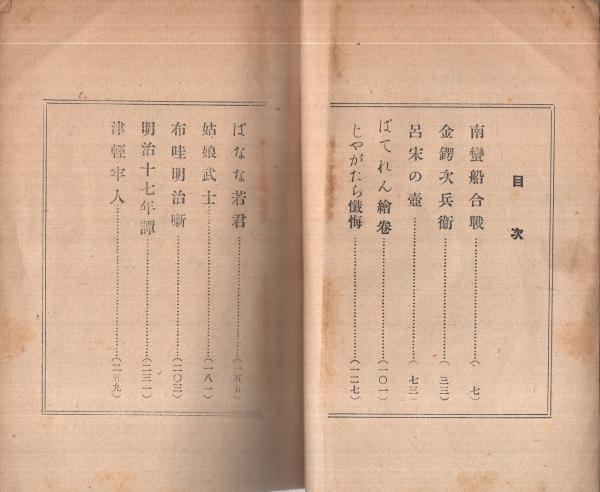 目次
南蠻船合戰…………( 七)
金鍔次兵衛…………( 三三)
呂宋の壺…………( 七三)
ばてれん繪卷…………(一〇一)
じやがたら懺悔…………(一二七)
ばなな若君…………(一五五)
姑娘武士…………(一八一)
布哇明治噺…………(二〇三)
明治十七年譚…………(二三一)
津輕牢人…………(二五九)